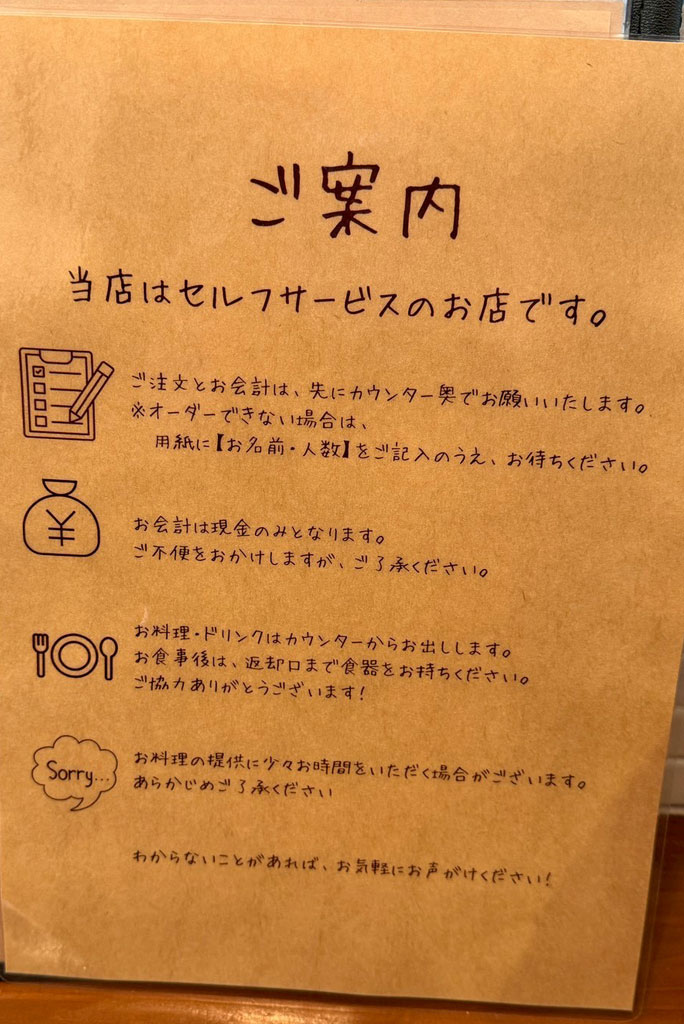 ご案内
当店はセルフサービスのお店です。
ご注文とお会計は、先にカウンター奥でお願いいたします。
※オーダーできない場合は、
用紙に【お名前・人数】をご記入のうえ、お待ちください。
¥
お会計は現金のみとなります。
ご不便をおかけしますが、ご了承ください。
お料理・ドリンクはカウンターからお出しします。
お食事後は、返却口まで食器をお持ちください。
ご協力ありがとうございます!
Sorry...
お料理の提供に少々お時間をいただく場合がございます。
あらかじめご了承ください
わからないことがあれば、お気軽にお声がけください!